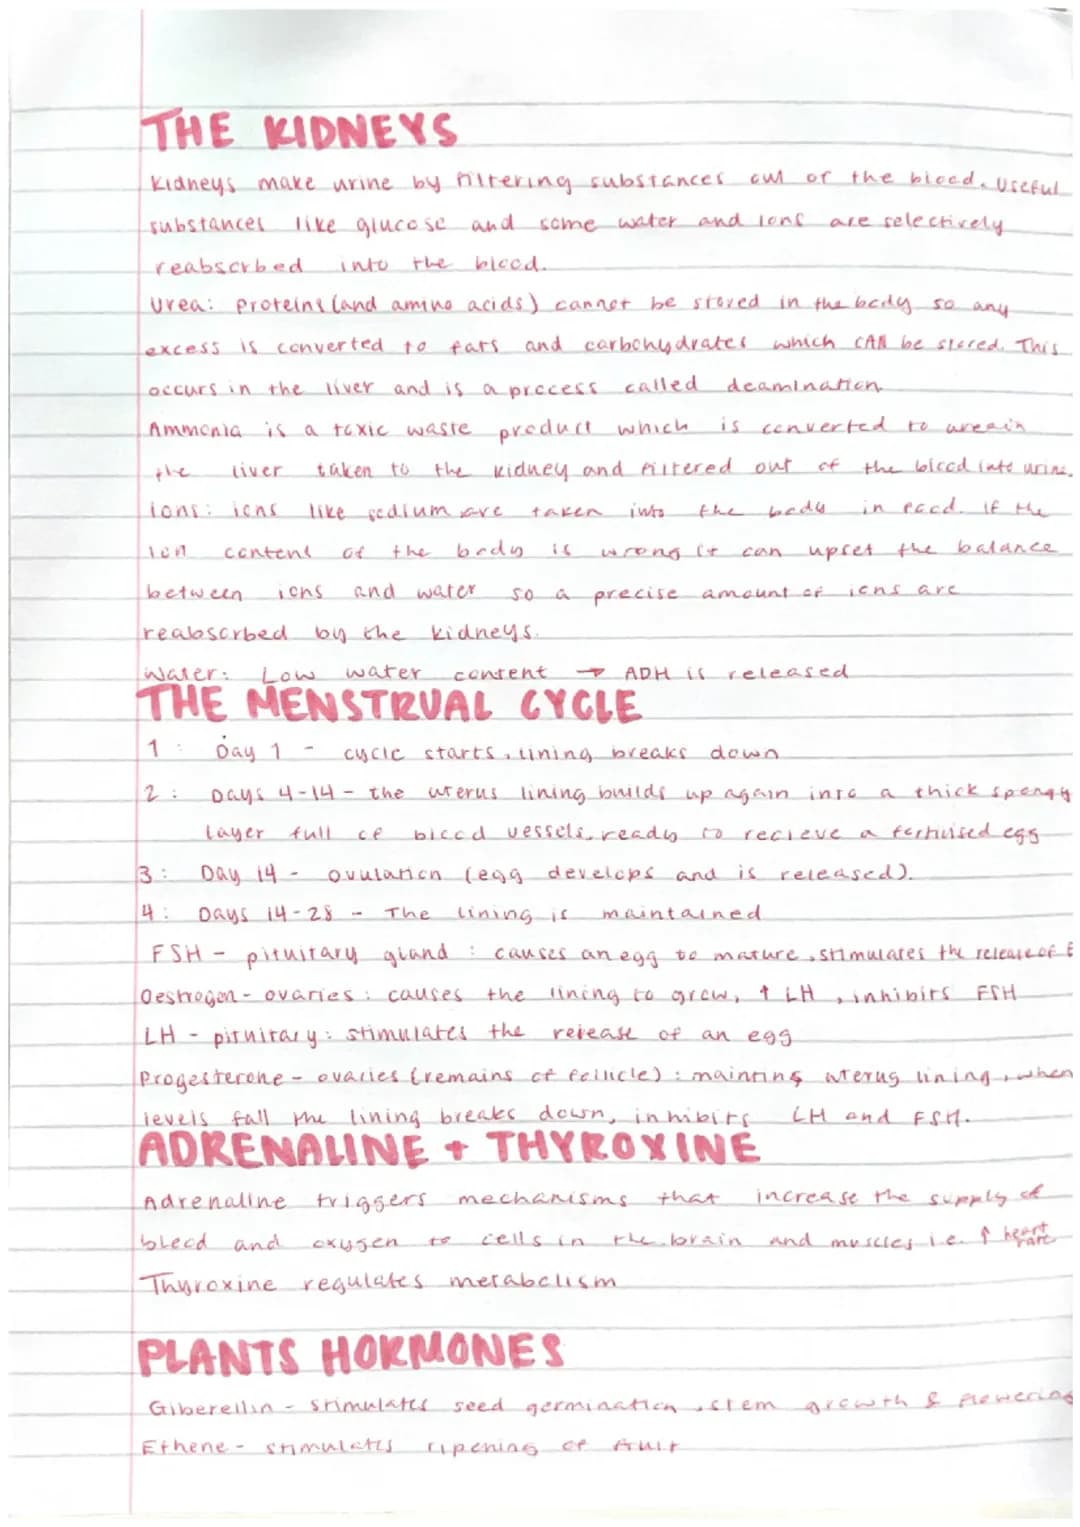 THE KIDNEYS
Kidneys make urine by filtering substances out of the blood. Useful
substances like glucose and some water and ions are selectively
reabsorbed into the blood.
Urea: proteins (and amino acids) cannot be stored in the body so any
excess is converted to fats and carbohydrates which CAN be stored. This
occurs in the liver and is a process called deamination.
Ammonia is a toxic waste product which is converted to urea in
the liver taken to the kidney and filtered out of the blood into urine.
ions: ions like sodium are taken into the body in food. If the
ion content of the body is wrong it can upset the balance
between ions and water so a precise amount of ions are
reabsorbed by the kidneys.
Water: Low water content → ADH is released
THE MENSTRUAL CYCLE
1: Day 1 - cycle starts, lining breaks down
2: Days 4-14 - the uterus lining builds up again into a thick spongy
layer full of blood vessels, ready to recieve a fertilised egg
3: Day 14 - ovulation (egg develops and is released).
4: Days 14-28 - The lining is maintained
FSH - pituitary gland : causes an egg to mature, stimulates the release of
Oestrogen - ovaries : causes the lining to grow, ↑ LH, inhibits FSH
LH - pituitary : stimulates the release of an egg
Progesterone - ovaries (remains of follicle) : uterus lining, when
levels fall the lining breaks down, inhibits LH and FSH.
ADRENALINE + THYROXINE
Adrenaline triggers mechanisms that increase the supply of
blood and oxygen to cells in the brain and muscles i.e. ↑ heart rate
Thyroxine regulates metabolism
PLANTS HORMONES
Giberellin - stimulates seed germination, stem growth & flowering
Ethene - stimulates ripening of fruit